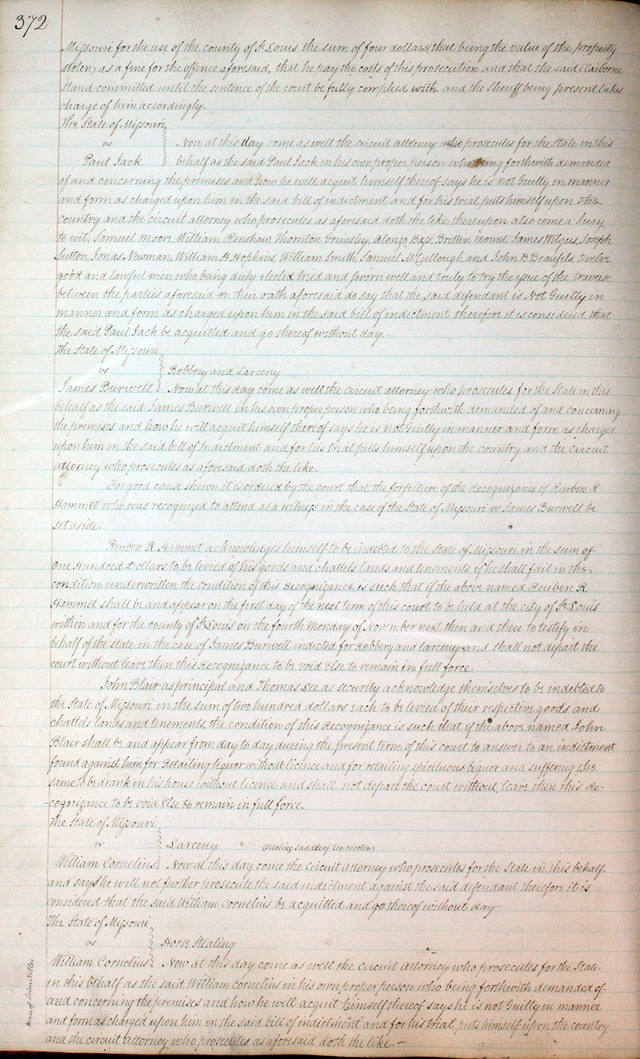 372
Missouri for the use of the county of St Louis the sum of four dollars (that being the value of the property
stolen) as a fine for the offence aforesaid, that he pay the costs of this prosecution and that the said Claiborne
stand committed until the sentence of the court be fully complied with and the Sheriff being present takes
charge of him accordingly.
The State of Missouri
vs Now at this day come as well the circuit attorney who prosecutes for the State in this
Paul Jack behalf as the said Paul Jack in his own proper person who being forthwith demanded
of and concerning the premises and how he will acquit himself thereof says he is not Guilty in manner
and form as charged upon him in the said bill of indictment and for his trial puts himself upon the
country and the circuit attorney who prosecutes as aforesaid doth the like thereupon also come a Jury
to wit, Samuel Moore, William Renshaw, Thornton Grimsley, Alonzo Bacs, Britten Mount, James Wilgus, Joseph
Sutton, Jonas Newman, William H Hopkins, William Smith, Samuel McCullough and John B Beaufils twelve
good and lawful men who being duly elected tried and sworn well and truly to try the issue of the traverse
between the parties aforesaid on their oath aforesaid do say that the said defendant is Not Guilty in
manner and form as charged upon him in the said bill of indictment therefore it is considered that
the said Paul Jack be acquitted and go thereof without day.
The State of Missouri
vs Robbery and Larceny
James Burwell Now at this day come as well the circuit attorney who prosecutes for the State in this
behalf as the said James Burwell in his own proper person who being forthwith demanded of and concerning
the premises and how he will acquit himself thereof says he is not Guilty in manner and form as charged
upon him in the said bill of Indictment and for his trial puts himself upon the country and the circuit
attorney who prosecutes as aforesaid doth the like.
For good cause shewn it is ordered by the court that the forfeiture of the Recognizance of Reuben R
Hammet who was recognized to attend as a witness in the case of the State of Missouri vs James Burwell be
set aside.
Reuben R. Hammet acknowledges himself to be indebted to the State of Missouri in the sum of
One Hundred Dollars to be levied of his goods and chattels lands and tenements if he shall fail in the
condition underwritten the condition of this Recognizance is such that if the above named Reuben R
Hammid shall be and appear on the first day of the next term of this court to be held at the city of St Louis
within and for the county of St Louis on the fourth Monday of November next then and there to testify in
behalf of the state in the case of James Burwell indicted for Robbery and Larceny and shall not depart the
court without leave then this Recognizance to be void Else to remain in full force
John Blair as principal and Thomas Lee as security acknowledge themselves to be indebted to
the State of Missouri in the sum of two hundred dollars each to be levied of their respective goods and
chattels lands and tenements, the condition of this Recognizance is such that if the above named John
Blair shall be and appear from day to day during the present term of this court to answer to an indictment
found against him for Retailing liquor without licence and for retailing spirituous liquor and suffering the
same to be drank in his house without licence and shall not depart the court without leave then this Re-
cognizance to be void Else to remain in full force.
The State of Missouri
vs Larceny (Stealing Saddle of Geo Morton)
William Cornelius Now at this day come the Circuit Attorney who prosecutes for the State in this behalf
and says he will not further prosecute the said indictment against the said defendant therefore it is
considered that the said William Cornelius be acquitted and go thereof without day
The State of Missouri
vs Horse Stealing
William Cornelius Now at this day come as well the Circuit Attorney who prosecutes for the State
in this behalf as the said William Cornelius in his own proper person who being forthwith demanded of
and concerning the premises and how he will acquit himself thereof says he is not Guilty in manner
and form as charged upon him in the said bill of indictment and for his trial, puts himself upon the country
and the circuit attorney who prosecutes as aforesaid doth the like.-